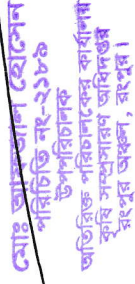 মোঃ আফজাল হোসেন
পরিচিতি নং-২১৮৯
উপপরিচালক
অতিরিক্ত পরিচালকের কার্যালয়
কৃষি সম্প্রসারণ অধিদপ্তর
রংপুর অঞ্চল, রংপুর।